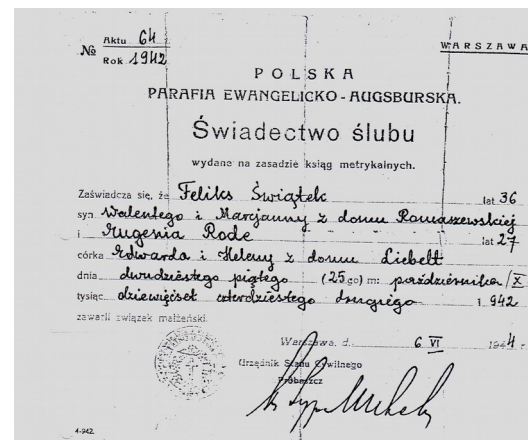 № Aktu 64
Rok 1942
WARSZAWA
POLSKA
PARAFIA EWANGELICKO-AUGSBURSKA.
Świadectwo ślubu
wydane na zasadzie ksiąg metrykalnych.
Zaświadcza się, że Feliks Świątek lat 36
syn Walentego i Marcjanny z domu Romaszewskiej
i Eugenia Rode lat 27
córka Edwarda i Heleny z domu Liebelt
dnia dwudziestego piątego (25.go) m: października /X
tysiąc dziewięćset czterdziestego drugiego 1.942
zawarli związek małżeński.
Warszawa, d. 6 VI 1944 r.
Urzędnik Stanu Cywilnego
Proboszcz
4-942.